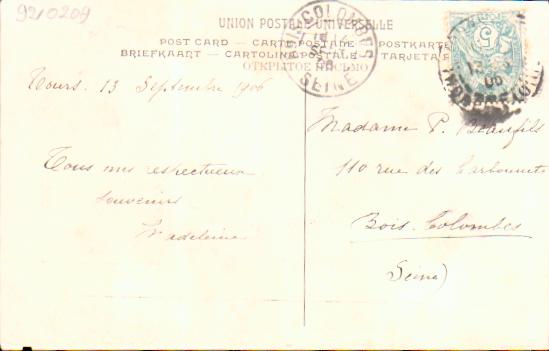 9210209
UNION POSTALE UNIVERSELLE
POST CARD — CARTE POSTALE — POSTKARTE
BRIEFKAART — CARTOLINA POSTALE — TARJETA
ОТКРЫТОЕ ПИСЬМО
BOIS-COLOMBES
SEINE
5
Tours. 13 Septembre 1906
Tous mes respectueux
souvenirs
Madeleine
Madame P. Beaufils
110 rue des Carbonnets
Bois-Colombes
Seine)